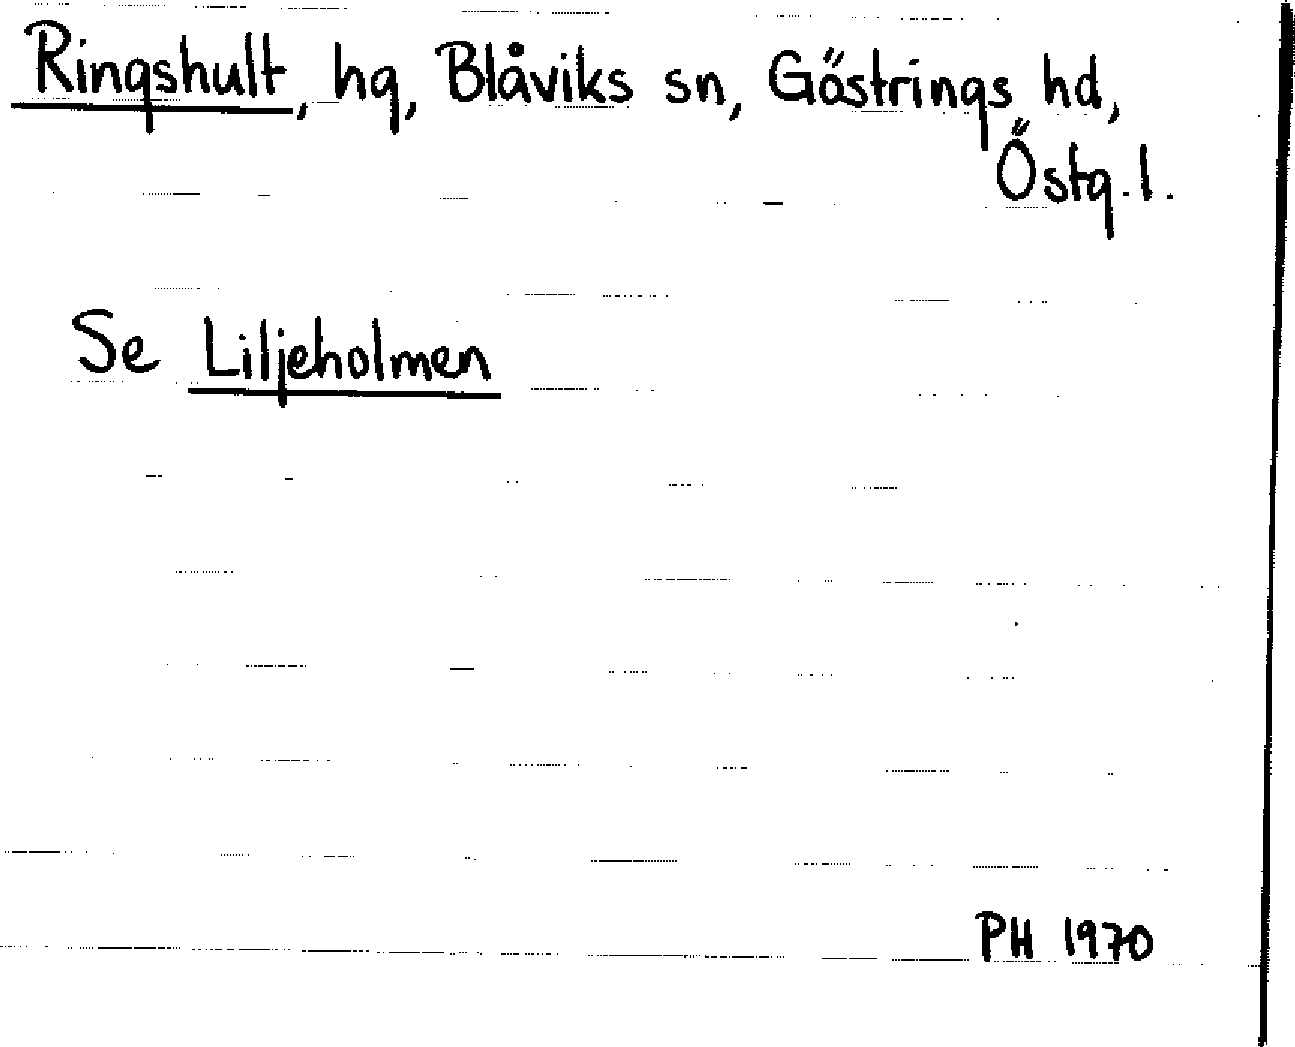 Ringshult, hg, Blåviks sn, Göstrings hd,
Östg. l.
Se Liljeholmen
PH 1970